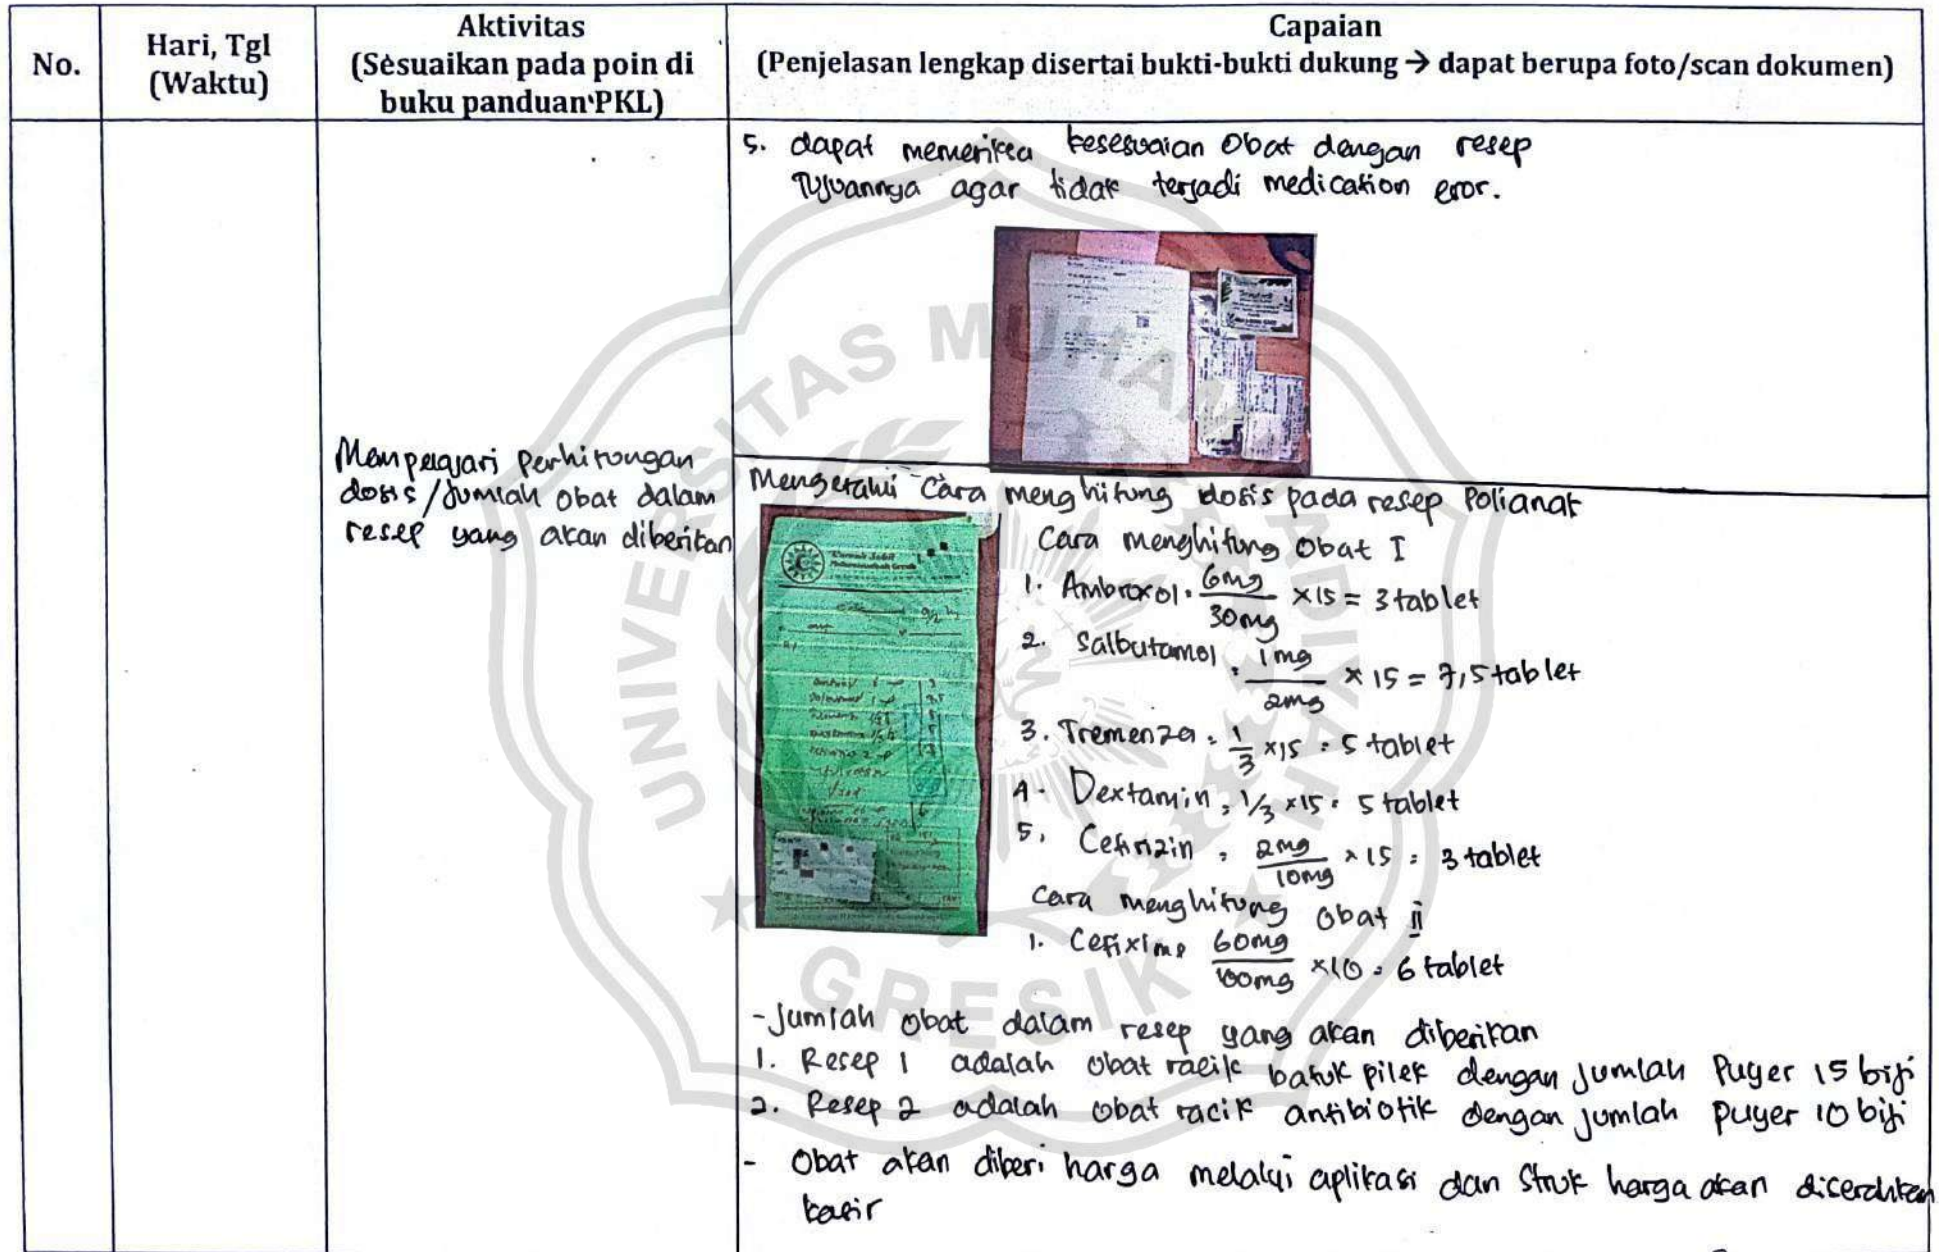 No.
Hari, Tgl
(Waktu)
Aktivitas
(Sesuaikan pada poin di
buku panduan PKL)
Capaian
(Penjelasan lengkap disertai bukti-bukti dukung → dapat berupa foto/scan dokumen)
5. dapat memeriksa kesesuaian Obat dengan resep
Tujuannya agar tidak terjadi medication eror.
Mempelajari Perhitungan
dosis/Jumlah obat dalam
resep yang akan diberikan
Mengetahui Cara menghitung dosis pada resep Polianak
Cara menghitung Obat I
1. Ambroxol = 6mg/30mg ×15 = 3 tablet
2. Salbutamol = 1mg/2mg × 15 = 7,5 tablet
3. Tremenza = 1/3 ×15 = 5 tablet
4. Dextamin = 1/3 ×15 = 5 tablet
5. Cetirizin = 2mg/10mg × 15 = 3 tablet
Cara menghitung Obat II
1. Cefixime 60mg/100mg ×10 = 6 tablet
- Jumlah obat dalam resep yang akan diberikan
1. Resep 1 adalah obat racik batuk pilek dengan jumlah Puyer 15 biji
2. Resep 2 adalah obat racik antibiotik dengan jumlah puyer 10 biji
- Obat akan diberi harga melalui aplikasi dan Struk harga akan diserahkan
kasir
UNIVERSITAS MUHAMMADIYAH
GRESIK